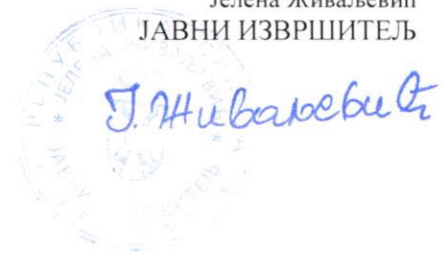 Јелена Живаљевић
ЈАВНИ ИЗВРШИТЕЉ
Ј. Живаљевић